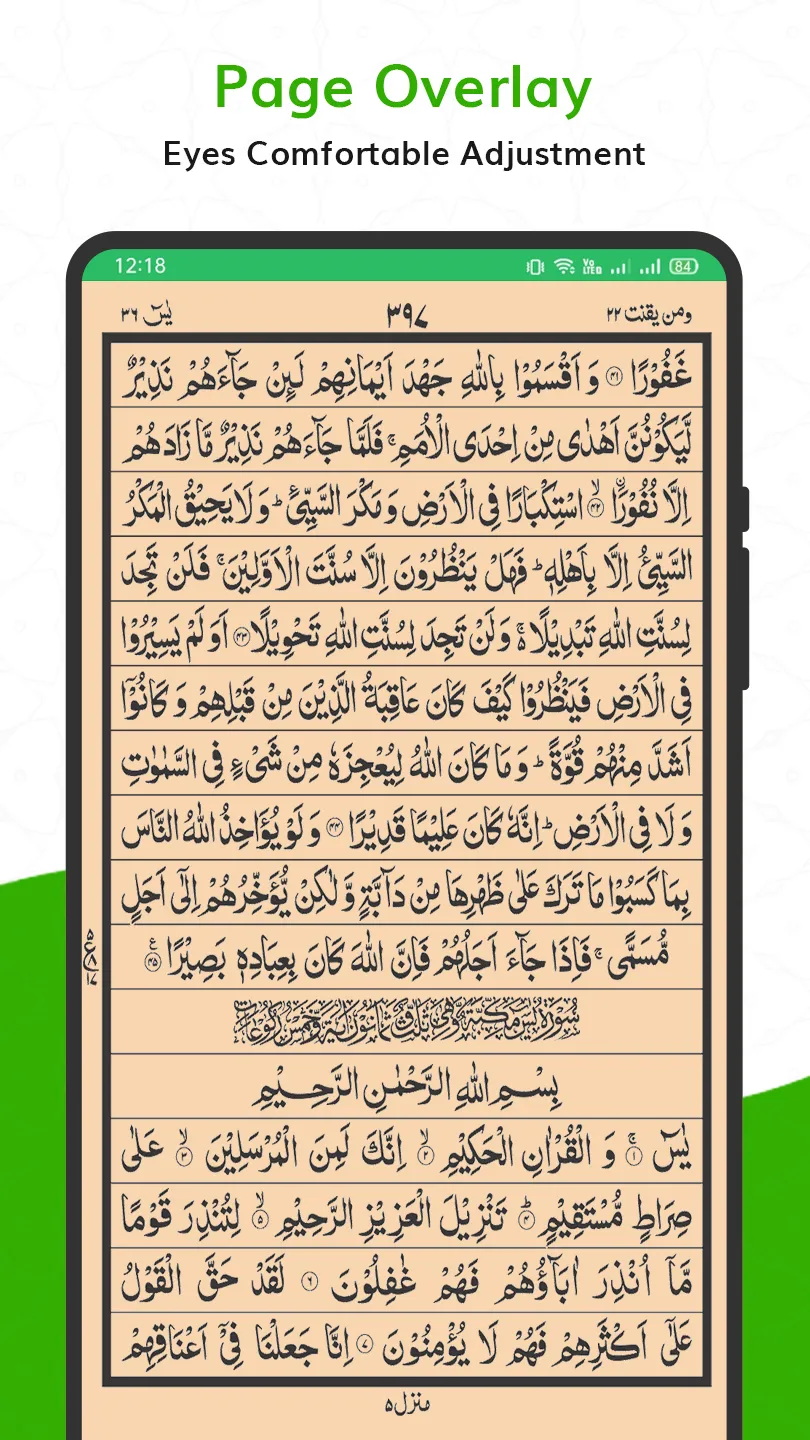 Page Overlay
Eyes Comfortable Adjustment
12:18
Vo LTED
84
ومن يقنت ٢٢
٣٩٧
يٰسٓ ٣٦
غَفُوْرًا ﴿۴۱﴾ وَ اَقْسَمُوْا بِاللّٰهِ جَهْدَ اَيْمَانِهِمْ لَئِنْ جَآءَهُمْ نَذِيْرٌ
لَّيَكُوْنُنَّ اَهْدٰى مِنْ اِحْدَى الْاُمَمِ ۚ فَلَمَّا جَآءَهُمْ نَذِيْرٌ مَّا زَادَهُمْ
اِلَّا نُفُوْرًا ﴿۴۲﴾ۙ اسْتِكْبَارًا فِى الْاَرْضِ وَ مَكْرَ السَّيِّئِ ؕ وَ لَا يَحِيْقُ الْمَكْرُ
السَّيِّئُ اِلَّا بِاَهْلِهٖ ؕ فَهَلْ يَنْظُرُوْنَ اِلَّا سُنَّتَ الْاَوَّلِيْنَ ۚ فَلَنْ تَجِدَ
لِسُنَّتِ اللّٰهِ تَبْدِيْلًا ۚ۬ وَ لَنْ تَجِدَ لِسُنَّتِ اللّٰهِ تَحْوِيْلًا ﴿۴۳﴾ اَوَ لَمْ يَسِيْرُوْا
فِى الْاَرْضِ فَيَنْظُرُوْا كَيْفَ كَانَ عَاقِبَةُ الَّذِيْنَ مِنْ قَبْلِهِمْ وَ كَانُوْۤا
اَشَدَّ مِنْهُمْ قُوَّةً ؕ وَ مَا كَانَ اللّٰهُ لِيُعْجِزَهٗ مِنْ شَىْءٍ فِى السَّمٰوٰتِ
وَ لَا فِى الْاَرْضِ ؕ اِنَّهٗ كَانَ عَلِيْمًا قَدِيْرًا ﴿۴۴﴾ وَ لَوْ يُؤَاخِذُ اللّٰهُ النَّاسَ
بِمَا كَسَبُوْا مَا تَرَكَ عَلٰى ظَهْرِهَا مِنْ دَآبَّةٍ وَّ لٰكِنْ يُّؤَخِّرُهُمْ اِلٰٓى اَجَلٍ
مُّسَمًّى ۚ فَاِذَا جَآءَ اَجَلُهُمْ فَاِنَّ اللّٰهَ كَانَ بِعِبَادِهٖ بَصِيْرًا ﴿۴۵﴾
سُوْرَةُ يٰسٓ مَكِّيَّةٌ وَّهِىَ ثَلٰثٌ وَّ ثَمَانُوْنَ اٰيَةً وَّ خَمْسُ رُكُوْعَاتٍ
بِسْمِ اللّٰهِ الرَّحْمٰنِ الرَّحِيْمِ
يٰسٓ ﴿۱﴾ۚ وَ الْقُرْاٰنِ الْحَكِيْمِ ﴿۲﴾ۙ اِنَّكَ لَمِنَ الْمُرْسَلِيْنَ ﴿۳﴾ۙ عَلٰى
صِرَاطٍ مُّسْتَقِيْمٍ ﴿۴﴾ؕ تَنْزِيْلَ الْعَزِيْزِ الرَّحِيْمِ ﴿۵﴾ۙ لِتُنْذِرَ قَوْمًا
مَّاۤ اُنْذِرَ اٰبَآؤُهُمْ فَهُمْ غٰفِلُوْنَ ﴿۶﴾ لَقَدْ حَقَّ الْقَوْلُ
عَلٰٓى اَكْثَرِهِمْ فَهُمْ لَا يُؤْمِنُوْنَ ﴿۷﴾ اِنَّا جَعَلْنَا فِىْۤ اَعْنَاقِهِمْ
منزل ۵